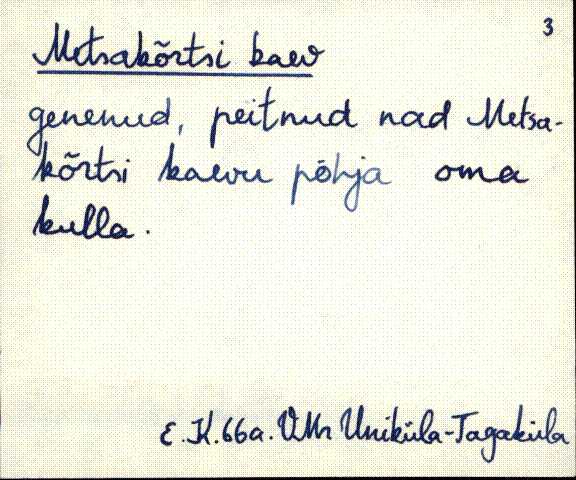 3
Metsakõrtsi kaev
genenud, peitnud nad Metsa-
kõrtsi kaevu põhja oma
kulla.
E.K. 66a. VMr Uniküla-Tagaküla